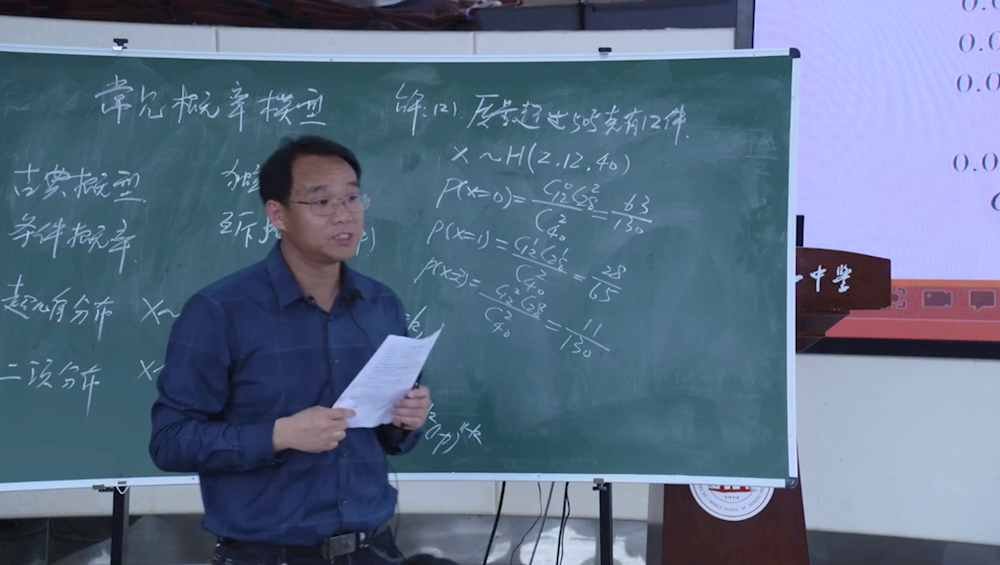 常见概率模型
古典概型
条件概率
超几何分布 X~
二项分布 X~
独
(1-p)^{n-k}
解:(2). 质量超过505克有12件.
X~H(2.12.40)
P(X=0)=\frac{C_{12}^{0}C_{28}^{2}}{C_{40}^{2}}=\frac{63}{130}
P(X=1)=\frac{C_{12}^{1}C_{28}^{1}}{C_{40}^{2}}=\frac{28}{65}
P(X=2)=\frac{C_{12}^{2}C_{28}^{0}}{C_{40}^{2}}=\frac{11}{130}
0.0
0.0
0.0
0.0
一中学